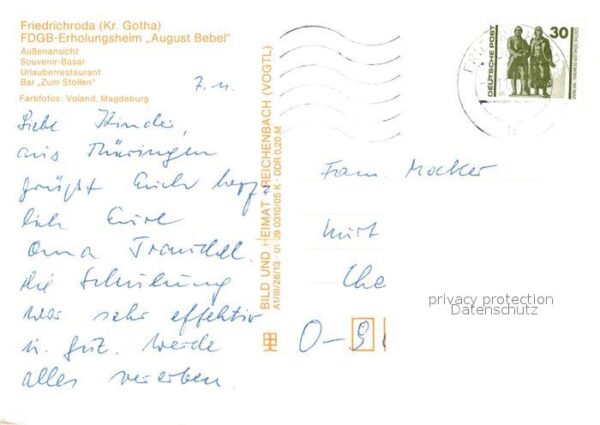 Friedrichroda (Kr. Gotha)
FDGB-Erholungsheim „August Bebel"
Außenansicht
Souvenir-Basar
Urlauberrestaurant
Bar „Zum Stollen"
Farbfotos: Voland, Magdeburg
7. 11.
Liebe Kinder,
aus Thüringen
grüßt Euch herz-
lich Eure
Oma Trauddl.
die Schulung
war sehr effektiv
u. gut. Werde
alles vererben.
BILD UND HEIMAT REICHENBACH (VOGTL)
A1/III/26/13 · 01 09 0310/05 K · DDR 0,20 M
DEUTSCHE POST
30
Fam. Mocker
Che
O-9
privacy protection
Datenschutz